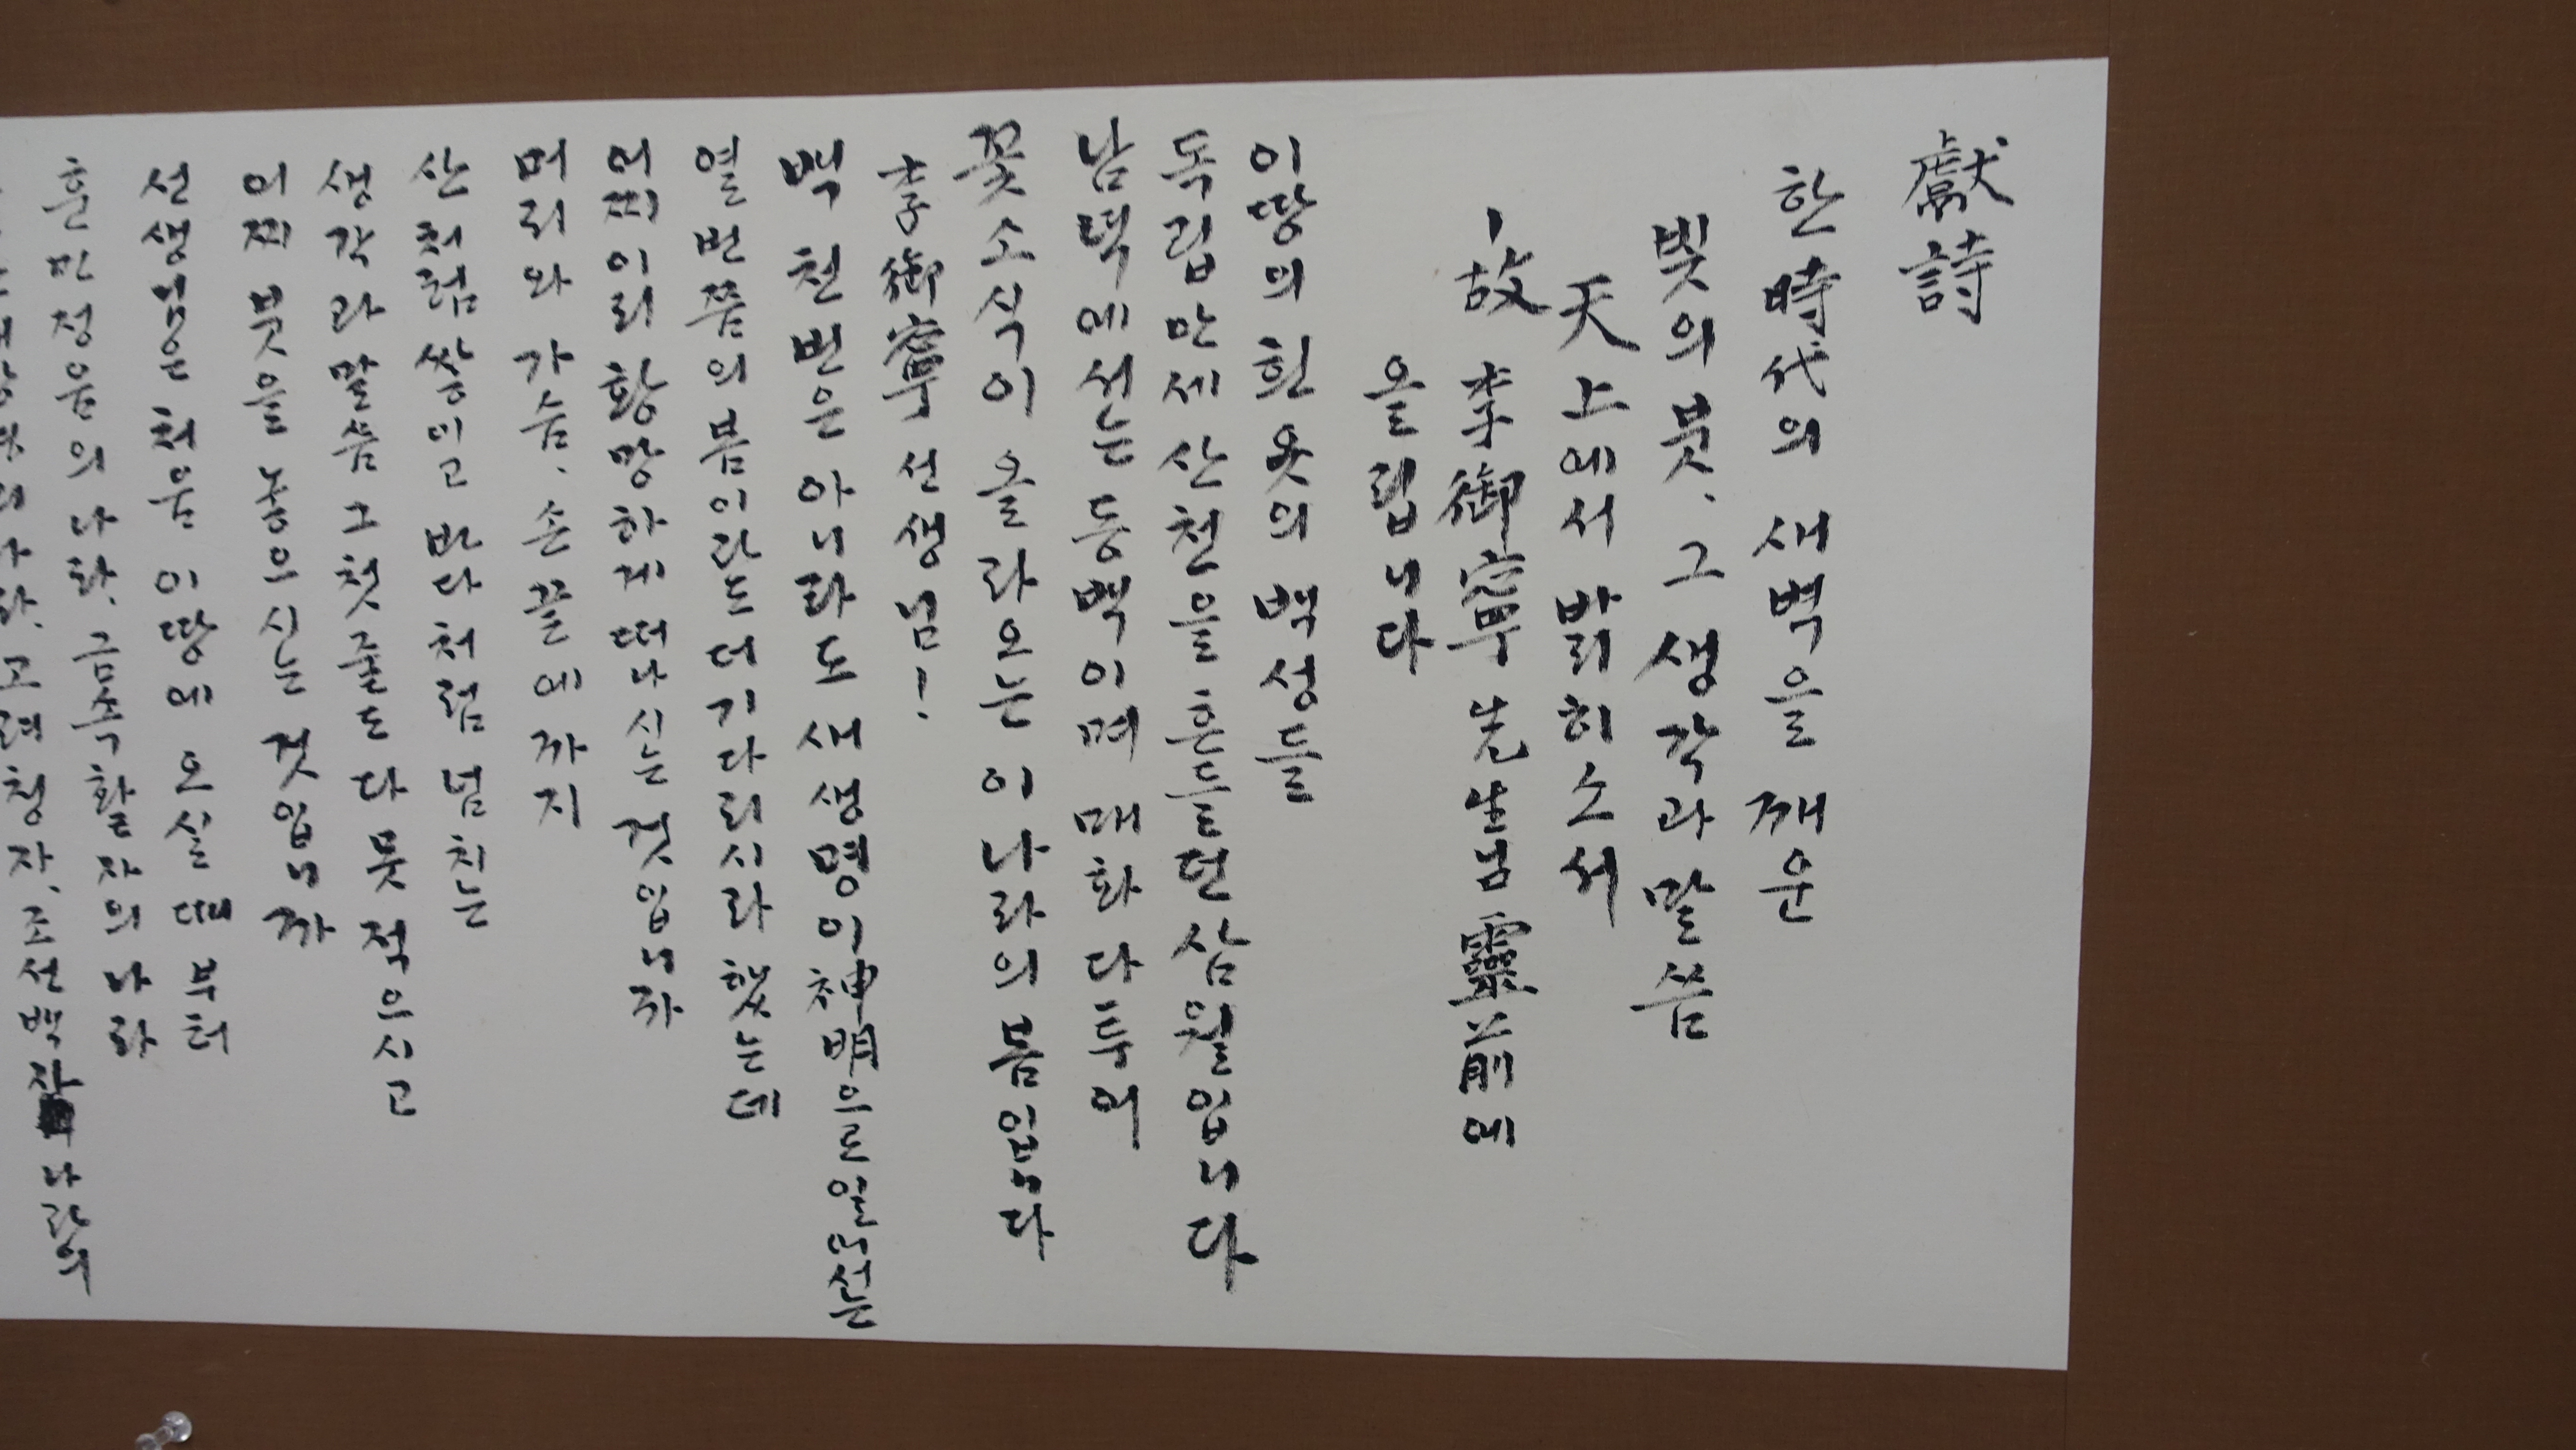 獻詩
한 時代의 새벽을 깨운
빛의 붓, 그 생각과 말씀
天上에서 밝히소서
-故 李御寧 先生님 靈前에
올립니다
이땅의 흰옷의 백성들
독립만세 산천을 흔들던 삼월입니다
남녘에서는 동백이며 매화 다투어
꽃소식이 올라오는 이 나라의 봄입니다
李御寧 선생님!
백 천번은 아니라도 새 생명이 神明으로 일어서는
열번쯤의 봄이라도 더 기다리시라 했는데
어찌 이리 황망하게 떠나시는 것입니까
머리와 가슴, 손끝에까지
산처럼 쌓이고 바다처럼 넘치는
생각과 말씀 그 첫줄도 다 못 적으시고
어찌 붓을 놓으시는 것입니까
선생님은 처음 이땅에 오실 때부터
훈민정음의 나라, 금속활자의 나라
고려청자, 조선백자 나라의